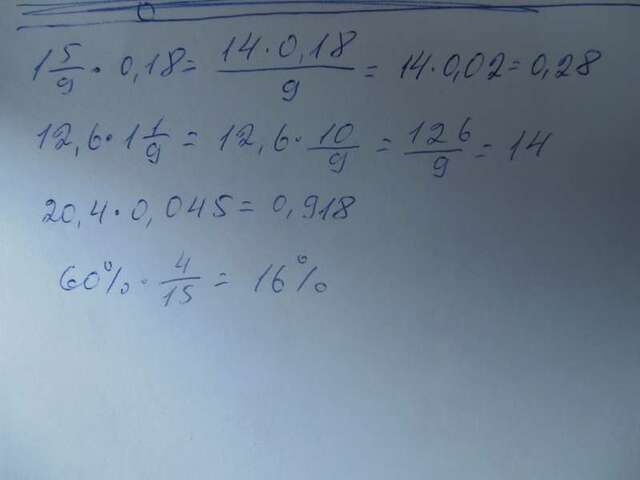 1 5/9 · 0,18 = 14·0,18/9 = 14·0,02 = 0,28
12,6 · 1 1/9 = 12,6 · 10/9 = 126/9 = 14
20,4 · 0,045 = 0,918
60% · 4/15 = 16%